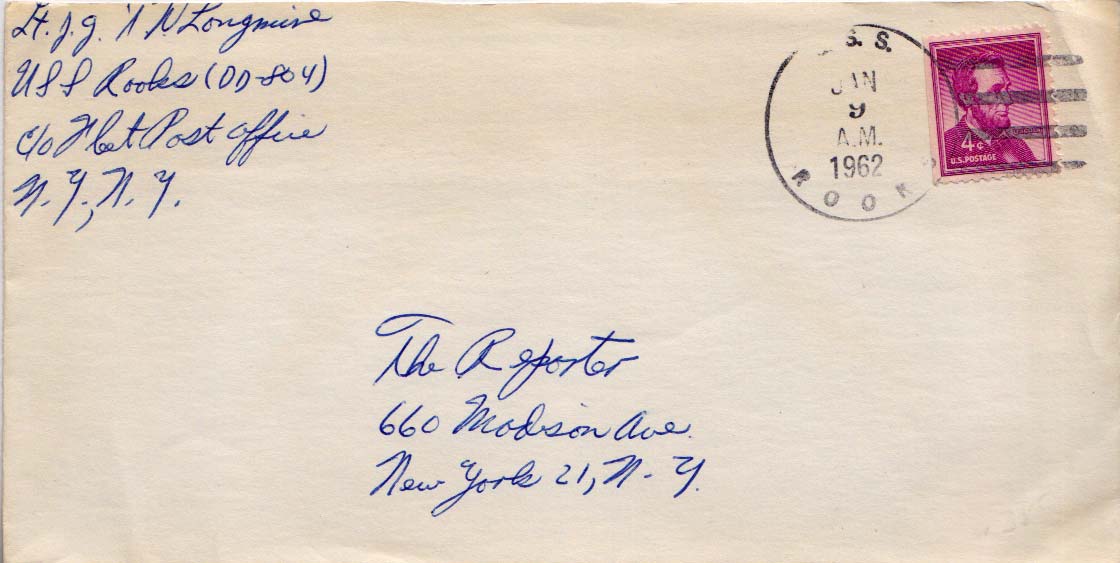 Lt. j.g. N Longmire
USS Rooks (DD-804)
c/o Fleet Post Office
N. Y., N. Y.
S. S.
JAN
9
A.M.
1962
ROOKS
4¢
U.S. POSTAGE
The Reporter
660 Madison Ave.
New York 21, N. Y.